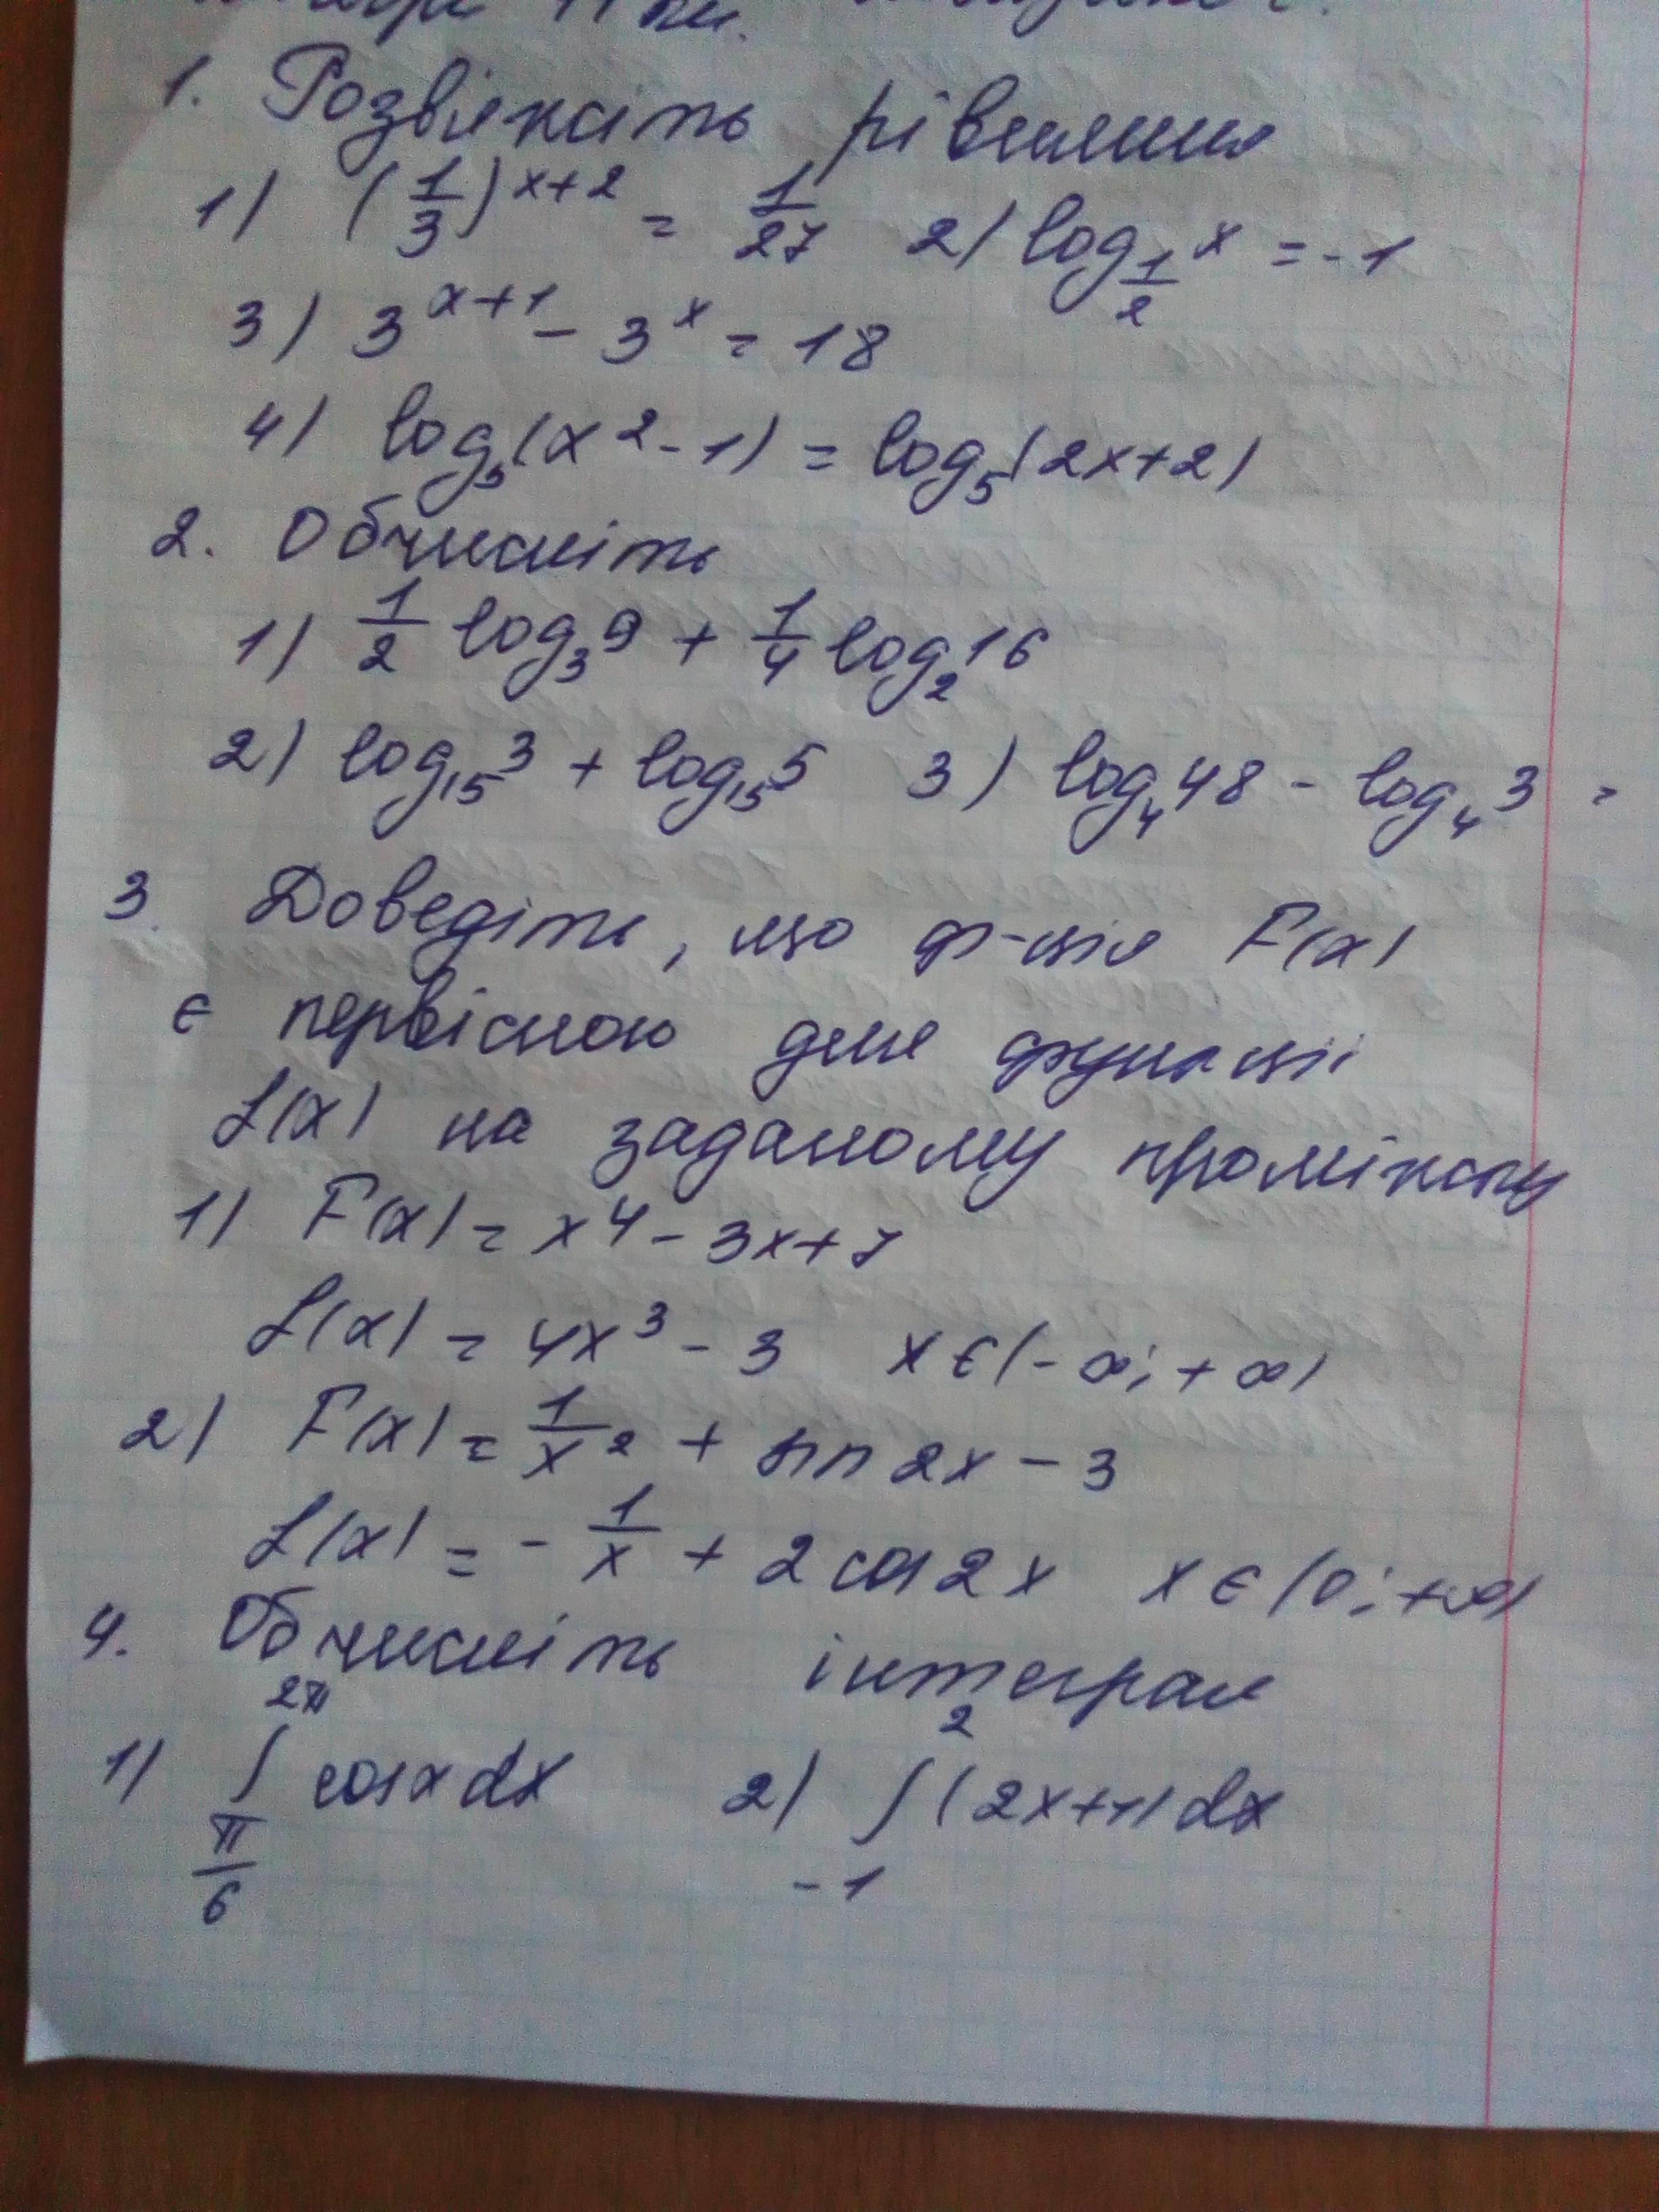 1. Розв'яжіть рівняння
1) (1/3)^(x+2) = 1/27 2) log_(1/2) x = -1
3) 3^(x+1) - 3^x = 18
4) log_5(x^2 - 1) = log_5(2x+2)
2. Обчисліть
1) 1/2 log_3 9 + 1/4 log_2 16
2) log_15 3 + log_15 5 3) log_4 48 - log_4 3 =
3. Доведіть, що ф-ція F(x)
є первісною для функції
f(x) на заданому проміжку
1) F(x) = x^4 - 3x + 7
f(x) = 4x^3 - 3 x ∈ (-∞; +∞)
2) F(x) = 1/x^2 + sin 2x - 3
f(x) = - 1/x + 2 cos 2x x ∈ (0; +∞)
4. Обчисліть інтеграл
1) ∫_(π/6)^(2π) cos x dx 2) ∫_(-1)^2 (2x+1) dx